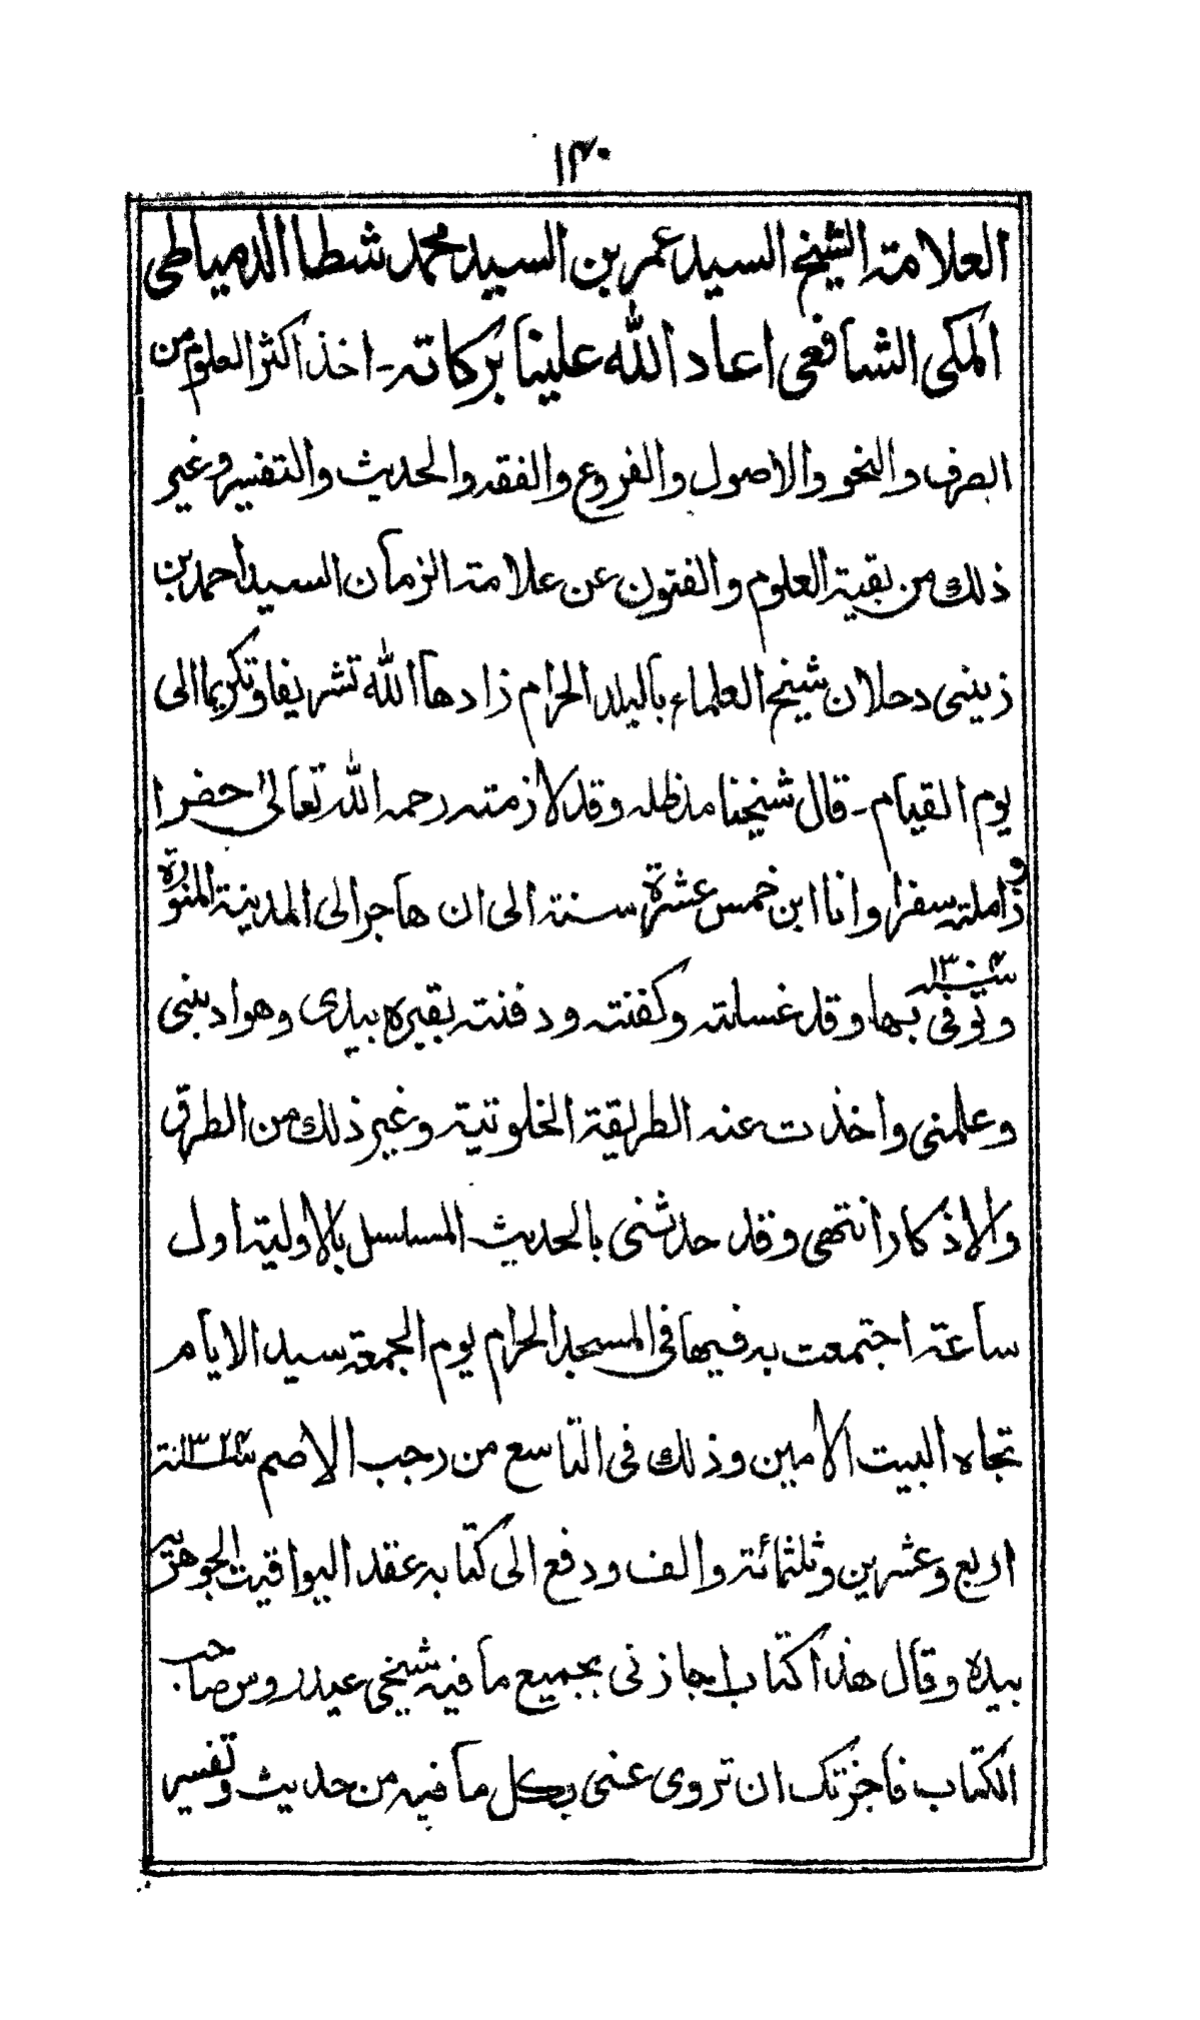 ۱۴۰
العلامة الشيخ السيد عمر بن السيد محمد شطا الدمياطي
المكي الشافعي اعاد الله علينا بركاته ـ اخذ اكثر العلوم من
الصرف والنحو والاصول والفروع والفقه والحديث والتفسير وغير
ذلك من بقية العلوم والفنون عن علامة الزمان السيد احمد بن
زيني دحلان شيخ العلماء بالبلد الحرام زادها الله تشريفا وتكريما الى
يوم القيام ـ قال شيخنا مد ظله وقد لازمته رحمه الله تعالىٰ حضرا
و زاملته سفرا وانا ابن خمس عشرة سنة الى ان هاجر الى المدينة المنورة
وتوفى بها سنة ۱۳۰۴ وقد غسلته وكفنته ودفنته بقبره بيدى وهو ادبنى
وعلمنى واخذت عنه الطريقة الخلوتية وغير ذلك من الطرق
والاذكار انتهى وقد حدثنى بالحديث المسلسل بالاولية اول
ساعة اجتمعت به فيها فى المسجد الحرام يوم الجمعة سيد الايام
تجاه البيت الامين وذلك فى التاسع من رجب الاصم سنة ۱۳۲۴
اربع وعشرين وثلثمائة والف ودفع الى كتابه عقد اليواقيت الجوهرية
بيده وقال هذا كتاب اجازنى بجميع ما فيه شيخى عيدروس صاحب
الكتاب فاجزتك ان تروى عنى بكل ما فيه من حديث وتفسير